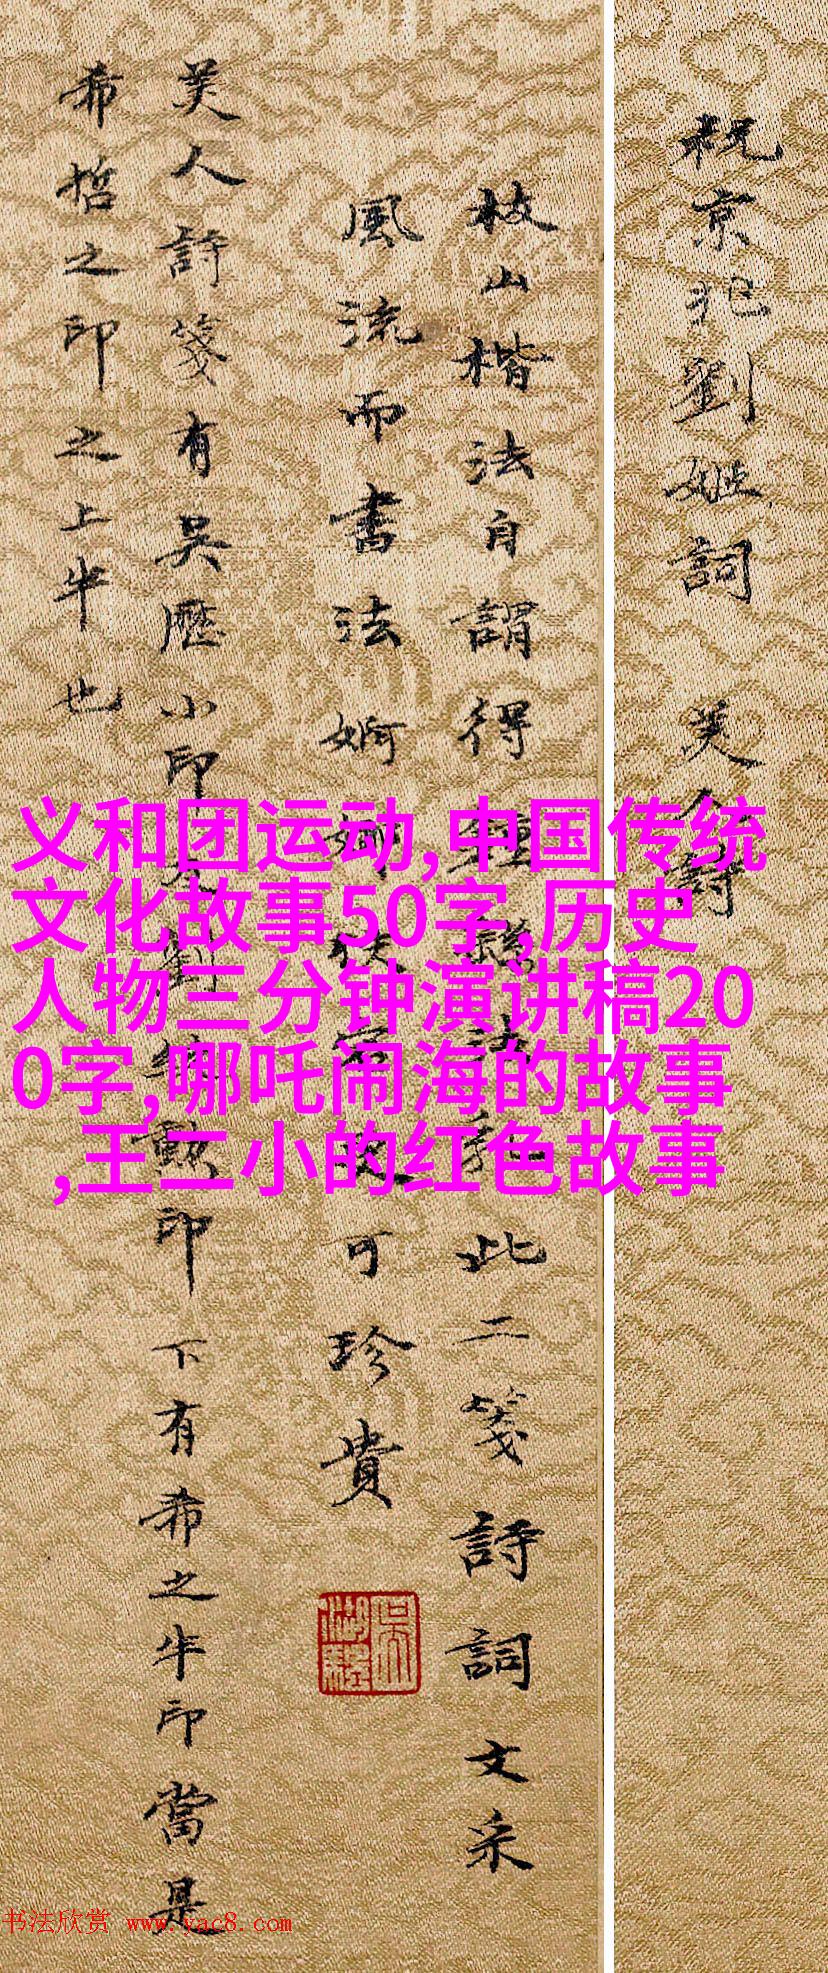 祝京兆劉姬詞 美人詩
枝山楷法自謂得鍾繇法 此二箋詩詞文采
風流而書法婀娜 可珍貴
美人詩箋有吳歷小印 劉 勲印下有希之半印當是
希哲之印之上半也
义和团运动,中国传统
文化故事50字,历史
人物三分钟演讲稿20
0字,哪吒闹海的故事
,王二小的红色故事
书法欣赏 www.yac8.com